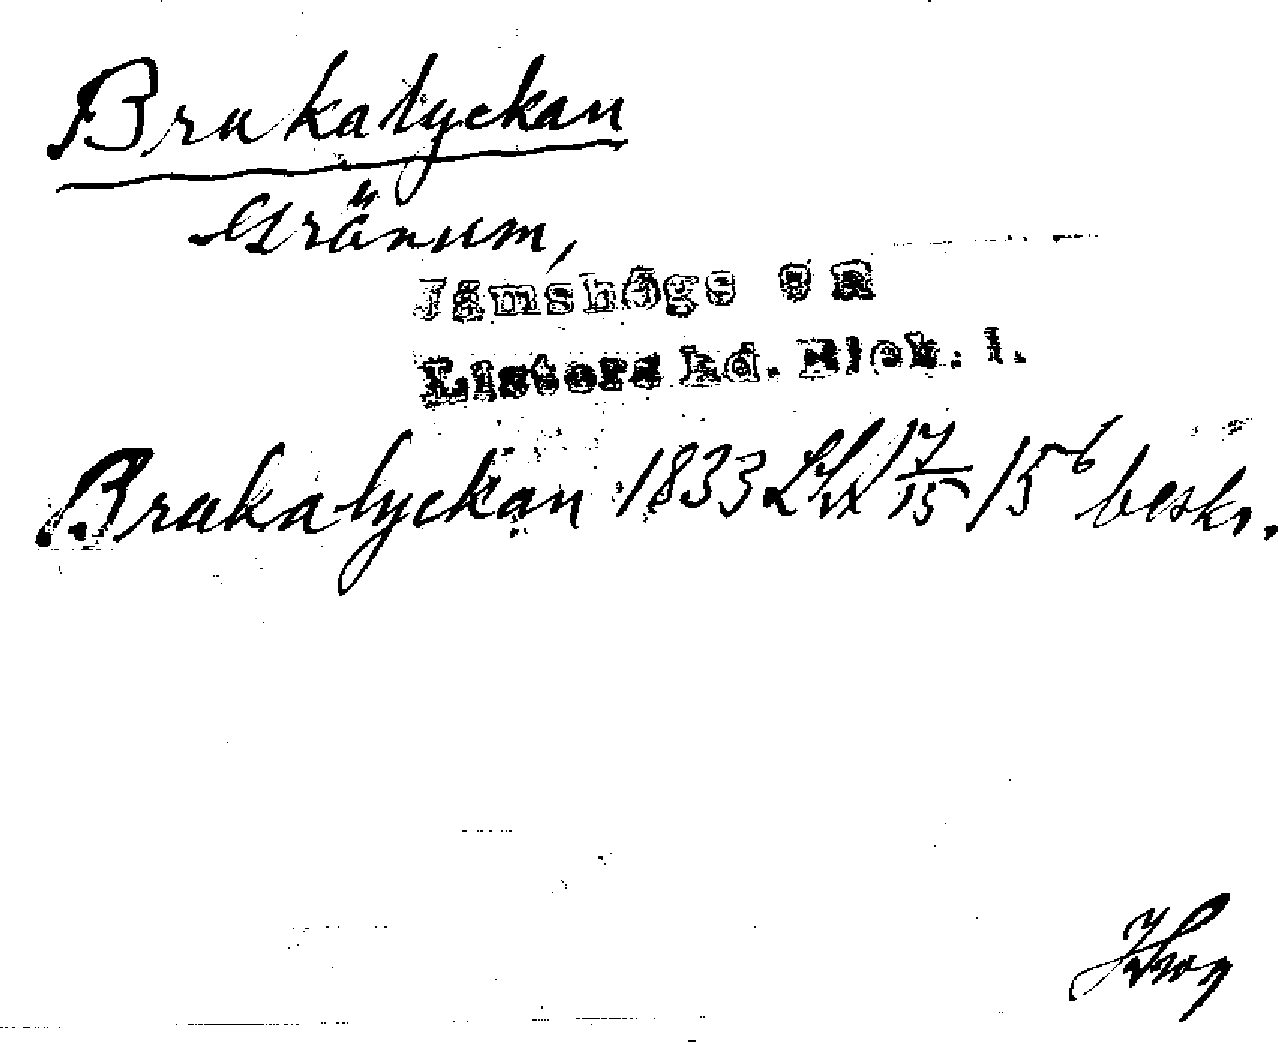 Brukatyckan
Gränum,
Jämshögs sn
Listers hd. Blek. l.
Brukatyckan 1833 17/15 / 15 6 beskr.